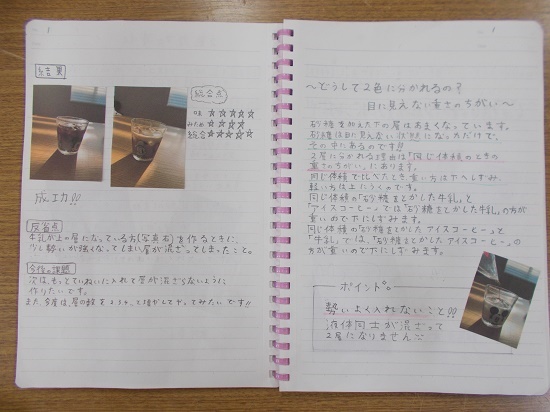 結果
総合点
味 ☆☆☆☆☆
みため ☆☆☆☆
総合 ☆☆☆☆☆
成功!!
反省点
牛乳が上の層になっている方(写真右)を作るときに、
少し勢いが強くなってしまい層が混ざってしまったこと。
今後の課題
次は、もっとていねいに入れて層が混ざらないように
作りたいです。
また、今度は、層の数を2,3,4…と増やしてやってみたいです!!
〜どうして2色に分かれるの?
目に見えない重さのちがい〜
砂糖を加えた下の層はあまくなっています。
砂糖は目に見えない状態になっただけで、
その中にあるのです!!
2層に分かれる理由は「同じ体積のときの
重さのちがい」にあります。
同じ体積で比べたとき重い方は下へしずみ、
軽い方は上にうくのです。
同じ体積の「砂糖をとかした牛乳」と
「アイスコーヒー」では「砂糖をとかした牛乳」の方が
重いので下にしずみます。
同じ体積の「砂糖をとかしたアイスコーヒー」と
「牛乳」では、「砂糖をとかしたアイスコーヒー」の
方が重いので下にしずみます。
ポイント。
勢いよく入れないこと!!
液体同士が混ざって
2層になりません